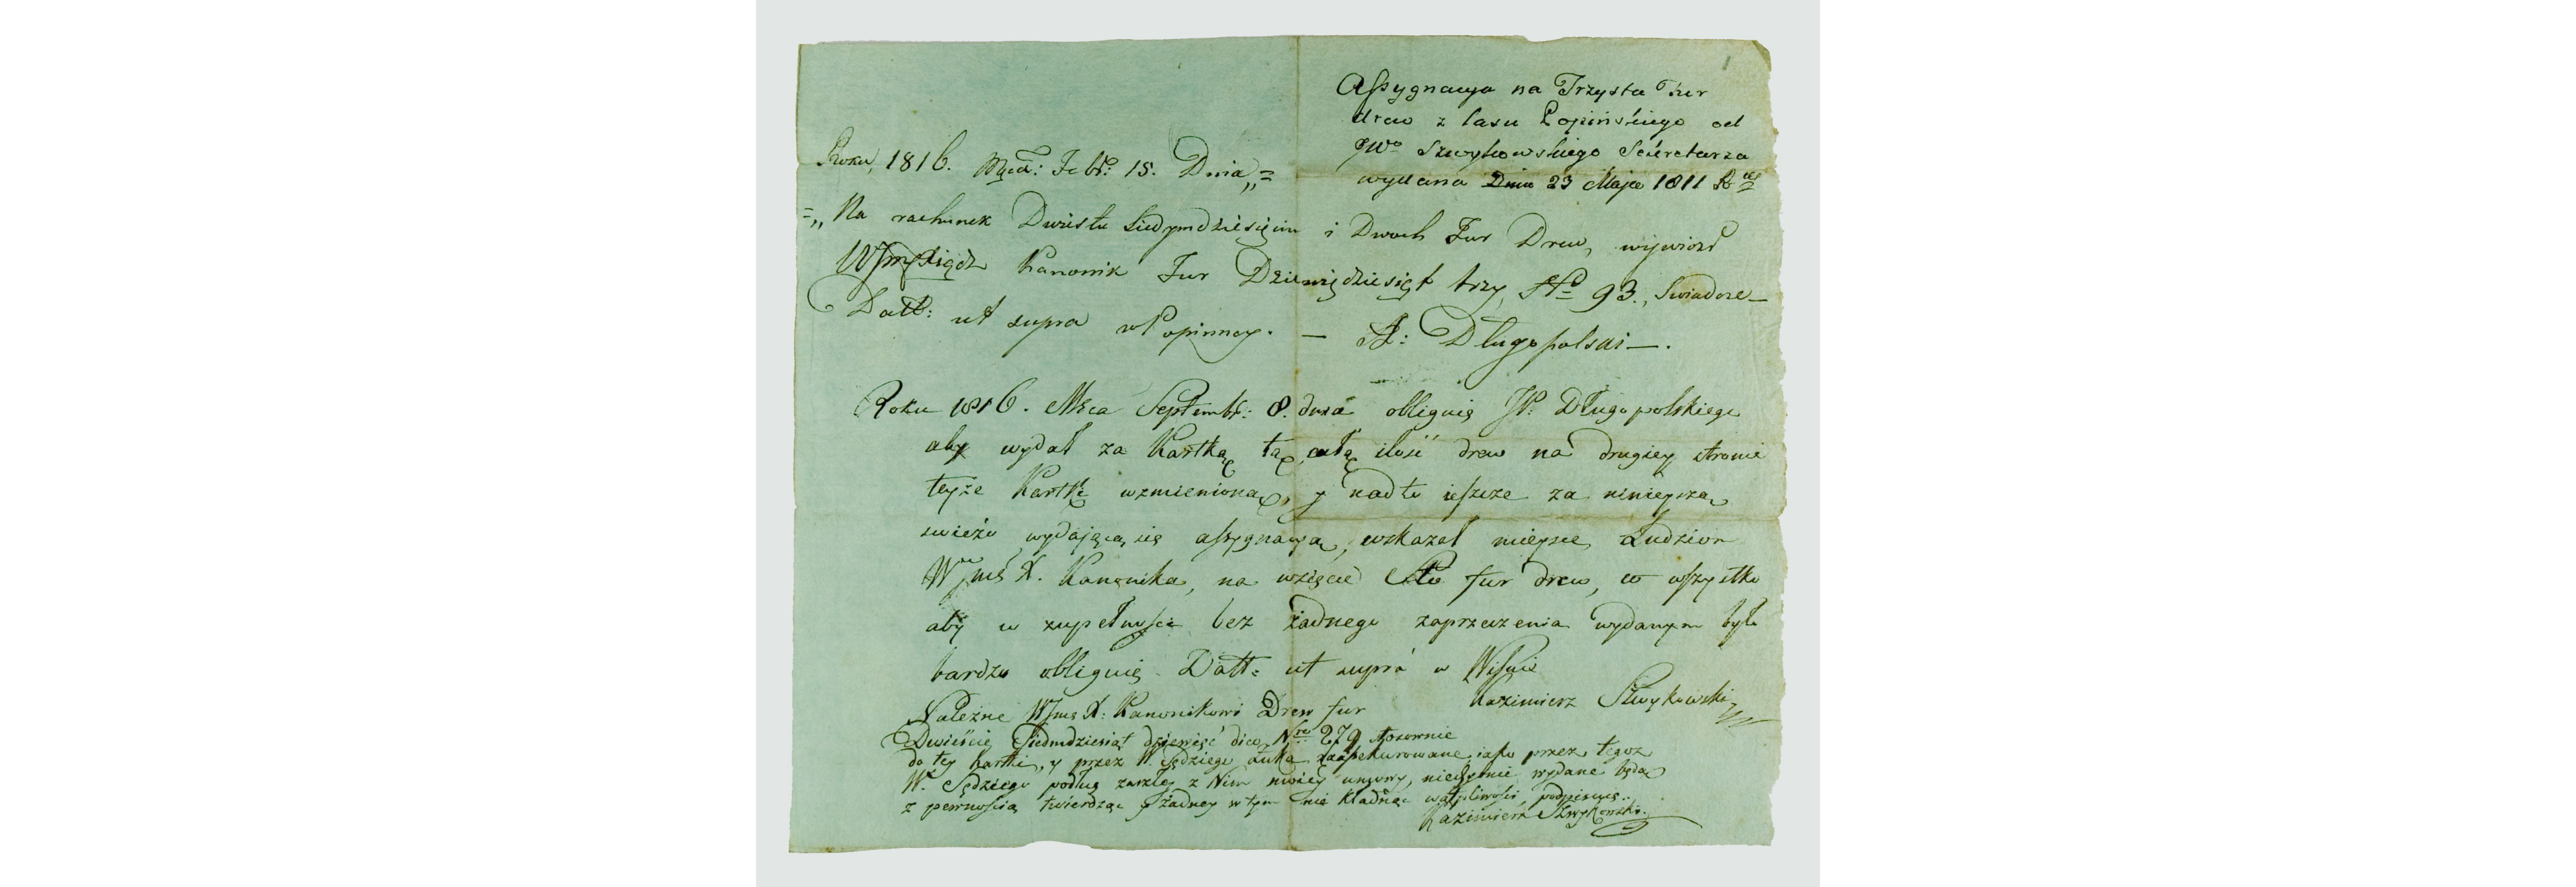 1
Assygnacya na Trzysta Fur
drew z lasu Popińskiego od
JWo Szwykowskiego Sekretarza
wydana Dnia 23 Maja 1811 R
Roku, 1816. Mgca: Febr: 15. Dnia,,=
=,, Na rachunek Dwustu Siedymdziesięciu i Dwoch Fur Drew, wywiozł
WJm Xiądz Kanonik Fur Dziewiędziesiąt trzy No 93., Swiadcze—
Datt: ut supra w Popinnej. — A: Długopolski—.
Roku 1816. Msca Septembr: 8. dnia obliguię JP. Długopolskiego
aby wydał za Kartką tą całą ilość drew na drugiey stronie
teyże Kartki wzmienioną, y nadto ieszcze za ninieyszą
swieżo wydającą się assygnacyą, wskazał mieysce Ludziom
WJmś X. Kanonika, na wzięcie Sto fur drew, co wszystko
aby w zupełności bez żadnego zaprzeczenia wydanym było
bardzo obliguię. Datt: ut supra w
Kazimierz Szwykowski
Należne WJmś X: Kanonikowi Drew fur
Dwieście Siedmdziesiąt dziewięć dico Nro 279 stosownie
do tey kartki, y przez W. Sędziego zaasekurowane, iako przez tegoz
W. Sędziego podług zaszłej z Nim umowy, niechybnie wydane będą
z pewnością twierdząc y żadney w tym nie kładnąc wątpliwości, podpisuię.
Kazimierz Szwykowski.